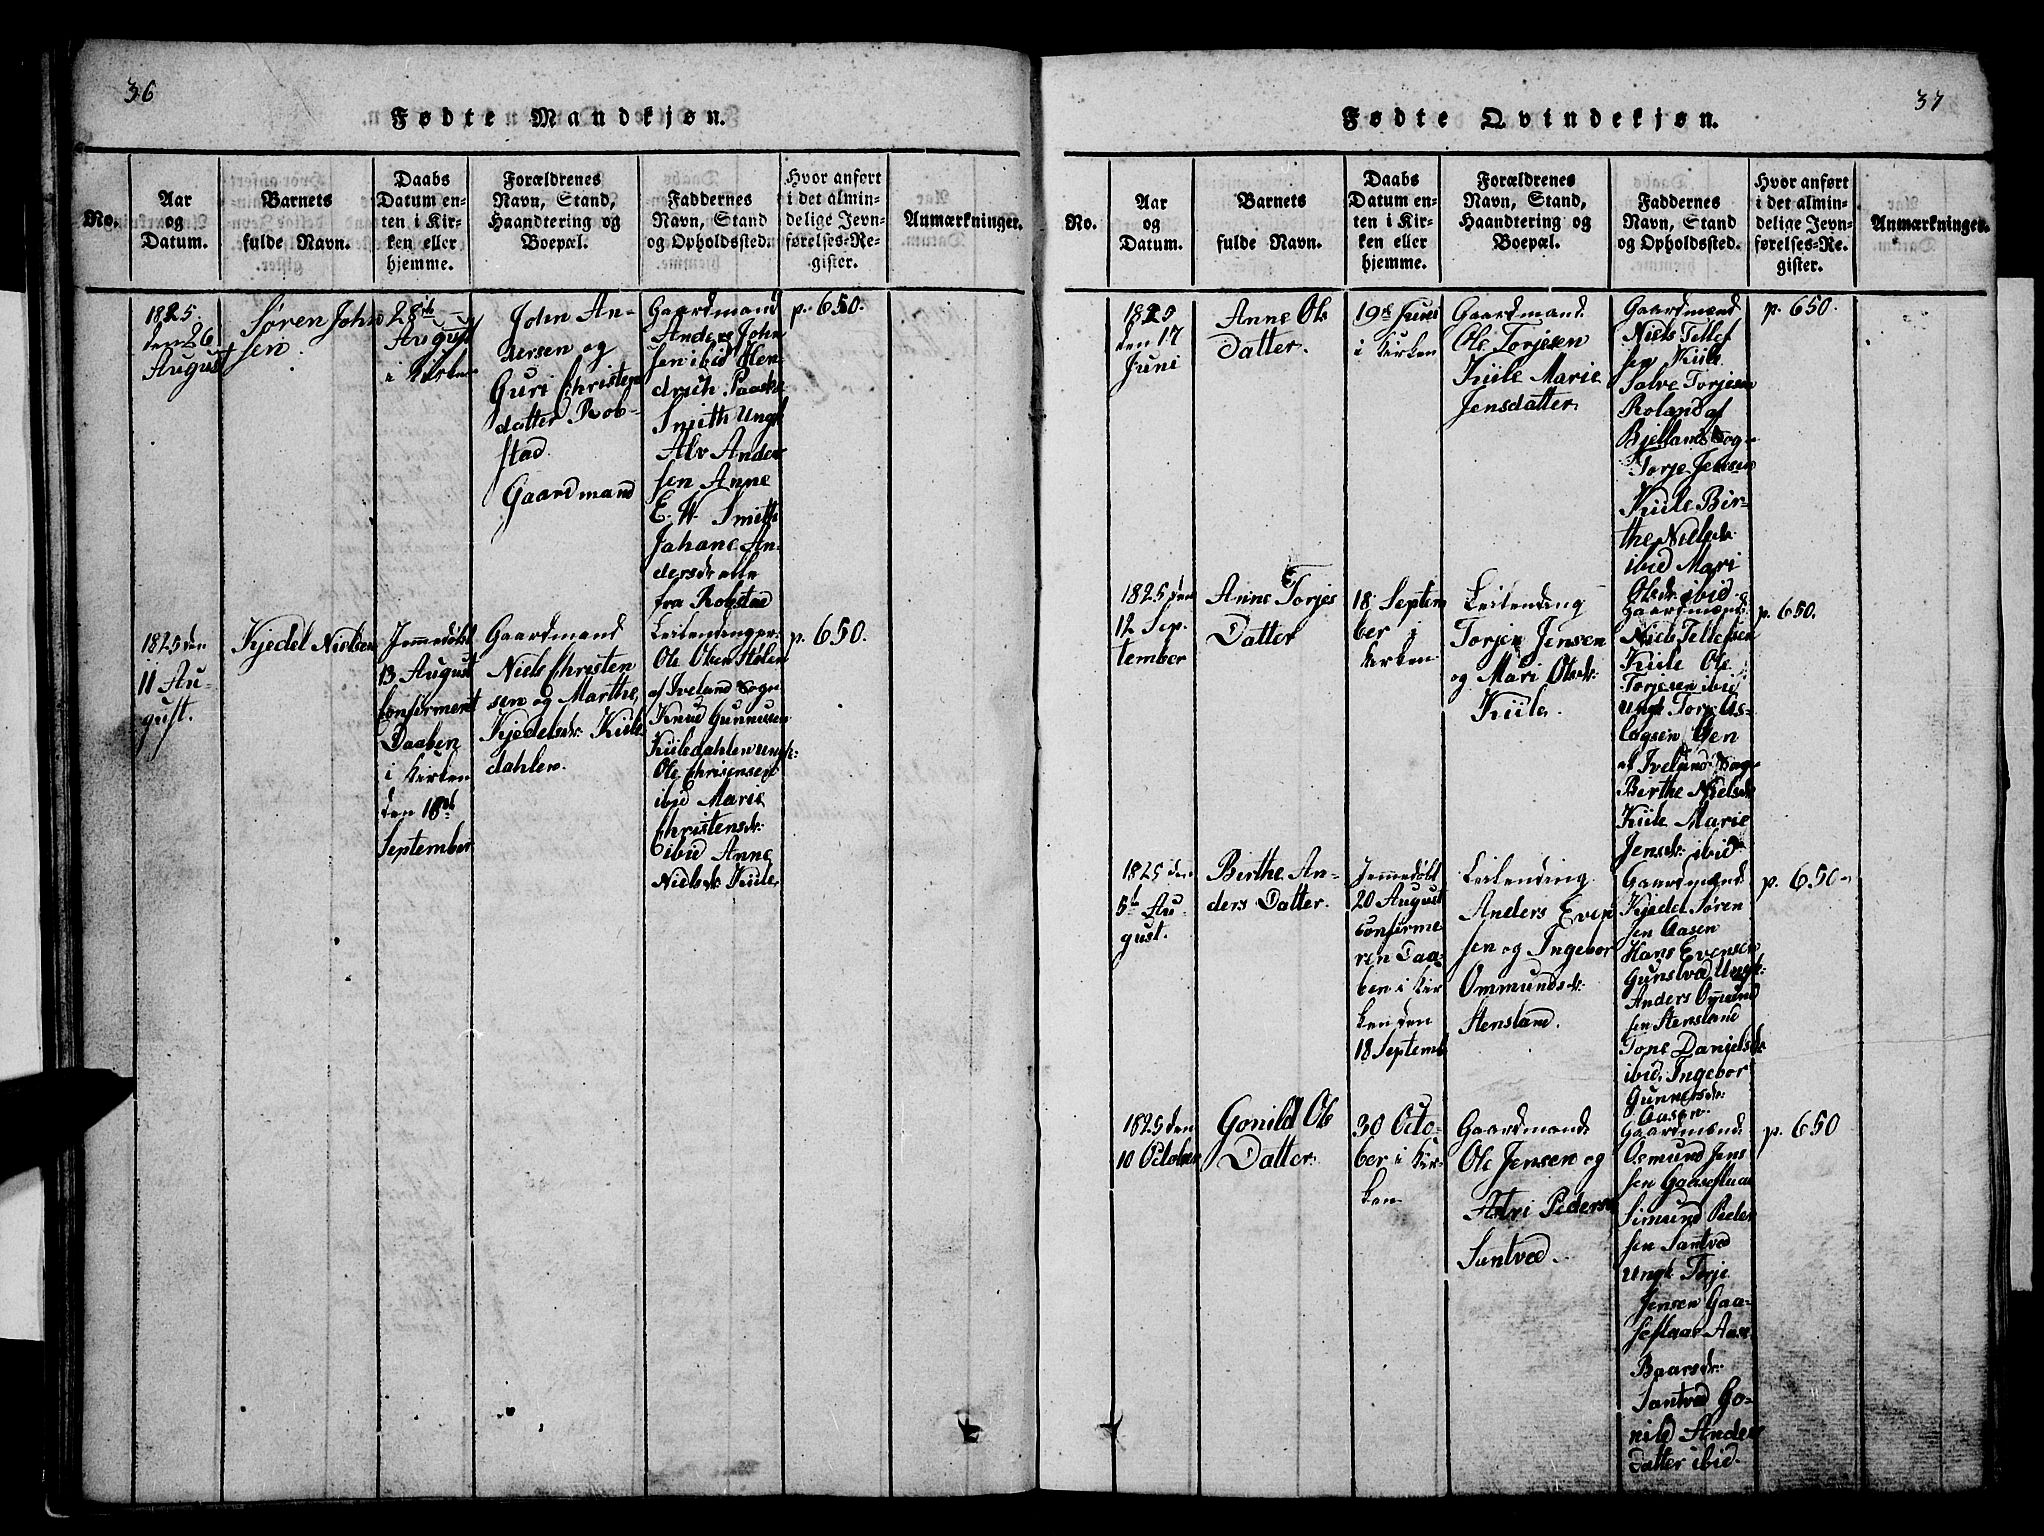 36
Fødte Mandkjøn.
No.
Aar
og
Datum.
Barnets
fulde Navn.
Daabs
Datum en-
ten i Kir-
ken eller
hjemme.
Forældrenes
Navn, Stand,
Haandtering og
Boepæl.
Faddernes
Navn, Stand
og Opholdssted.
Hvor anført
i det almin-
delige Jevn-
førelses-Re-
gister.
Anmærkninger.
1825.
den 26
August
Søren John
sen
28de
August
i Kirken
John An-
dersen og
Guri Christens
datter Rob-
stad
Gaardmand
Gaardmand
Anders John
sen ibid Hen-
drich Paaske
Smith Ungk
Alv Ander
sen Anne
E. W. Smith
Johane An-
dersdr alle
fra Robstad
p. 650.
1825 den
11 Au-
gust.
Kjedel Nielsen
Jemmedøbt
13 August
Confirment
Daaben
i Kirken
den 18de
September
Gaardmand
Niels Christen
sen og Marthe
Kjedelsdr. Kiile
dahlen.
Leilendinger
Ole Olsen Stølen
af Iveland Sogn
Knud Gunnusen
Kiiledahlen Ungk:
Ole Chrisensen
ibid Marie
Christensdr:
ibid Anne
Nielsdr. Kiile
p. 650.
37
Fødte Qvindekjøn.
No.
Aar
og
Datum.
Barnets
fulde Navn.
Daabs
Datum en-
ten i Kir-
ken eller
hjemme.
Forældrenes
Navn, Stand,
Haandtering og
Boepæl.
Faddernes
Navn, Stand
og Opholdssted.
Hvor anført
i det almin-
delige Jevn-
førelses-Re-
gister.
Anmærkninger.
1825
den 17
Juni
Anne Ols
Datter.
19de Juni
i Kirken
Gaardmand
Ole Torjesen
Kiile Marie
Jensdatter.
Gaardmænd
Niels Tellef
sen Kiile
Salve Torjesen
Roland af
Bjelland Sogn
Torje Jensen
Kiile Bir-
the Nielsdr.
ibid Mari
Olsdr. ibid
p. 650.
1825 den
12 Sep.
tember
Anne Torjes
Datter
18 Septem
ber i
Kirken
Leilending
Torjer Jensen
og Mari Olsdr.
Kiile.
Gaardmænd
Niels Tellefsen
Kiile Ole
Torjesen ibid
Ungk Torje As-
lagsen Oen
af Iveland Sogn
Birthe Nielsdr
Kiile Marie
Jensdr. ibid
p. 650.
1825 den
5te Au-
gust.
Birthe An-
ders Datter.
Jemmedøbt
20 August
Confirme
ren Daa-
ben i Kir
ken den
18 Septemb
Leilending
Anders Even
sen og Ingebor
Ommundsdr.
Stensland.
Gaardmænd
Kjedel Søren
sen Aasen
Hans Evensen
Gunstvæd Ungk:
Anders Omund
sen Stensland
Tone Danielsdr
ibid. Ingebor
Gunnersdr:
Aasen.
p. 650.
1825 den
10 October
Gonild Ols
Datter.
30 Octo-
ber i Kir-
ken
Gaardmand
Ole Jensen og
Astri Peders
Santvæd.
Gaardmænd
Osmund Jens
sen Gaaseflaae
Simund Peder
sen Santvæd
Ungk Torje
Jensen Gaa-
seflaae Aase
Baarsdr.
Santved Go-
nild Anders
Datter ibid.
p. 650